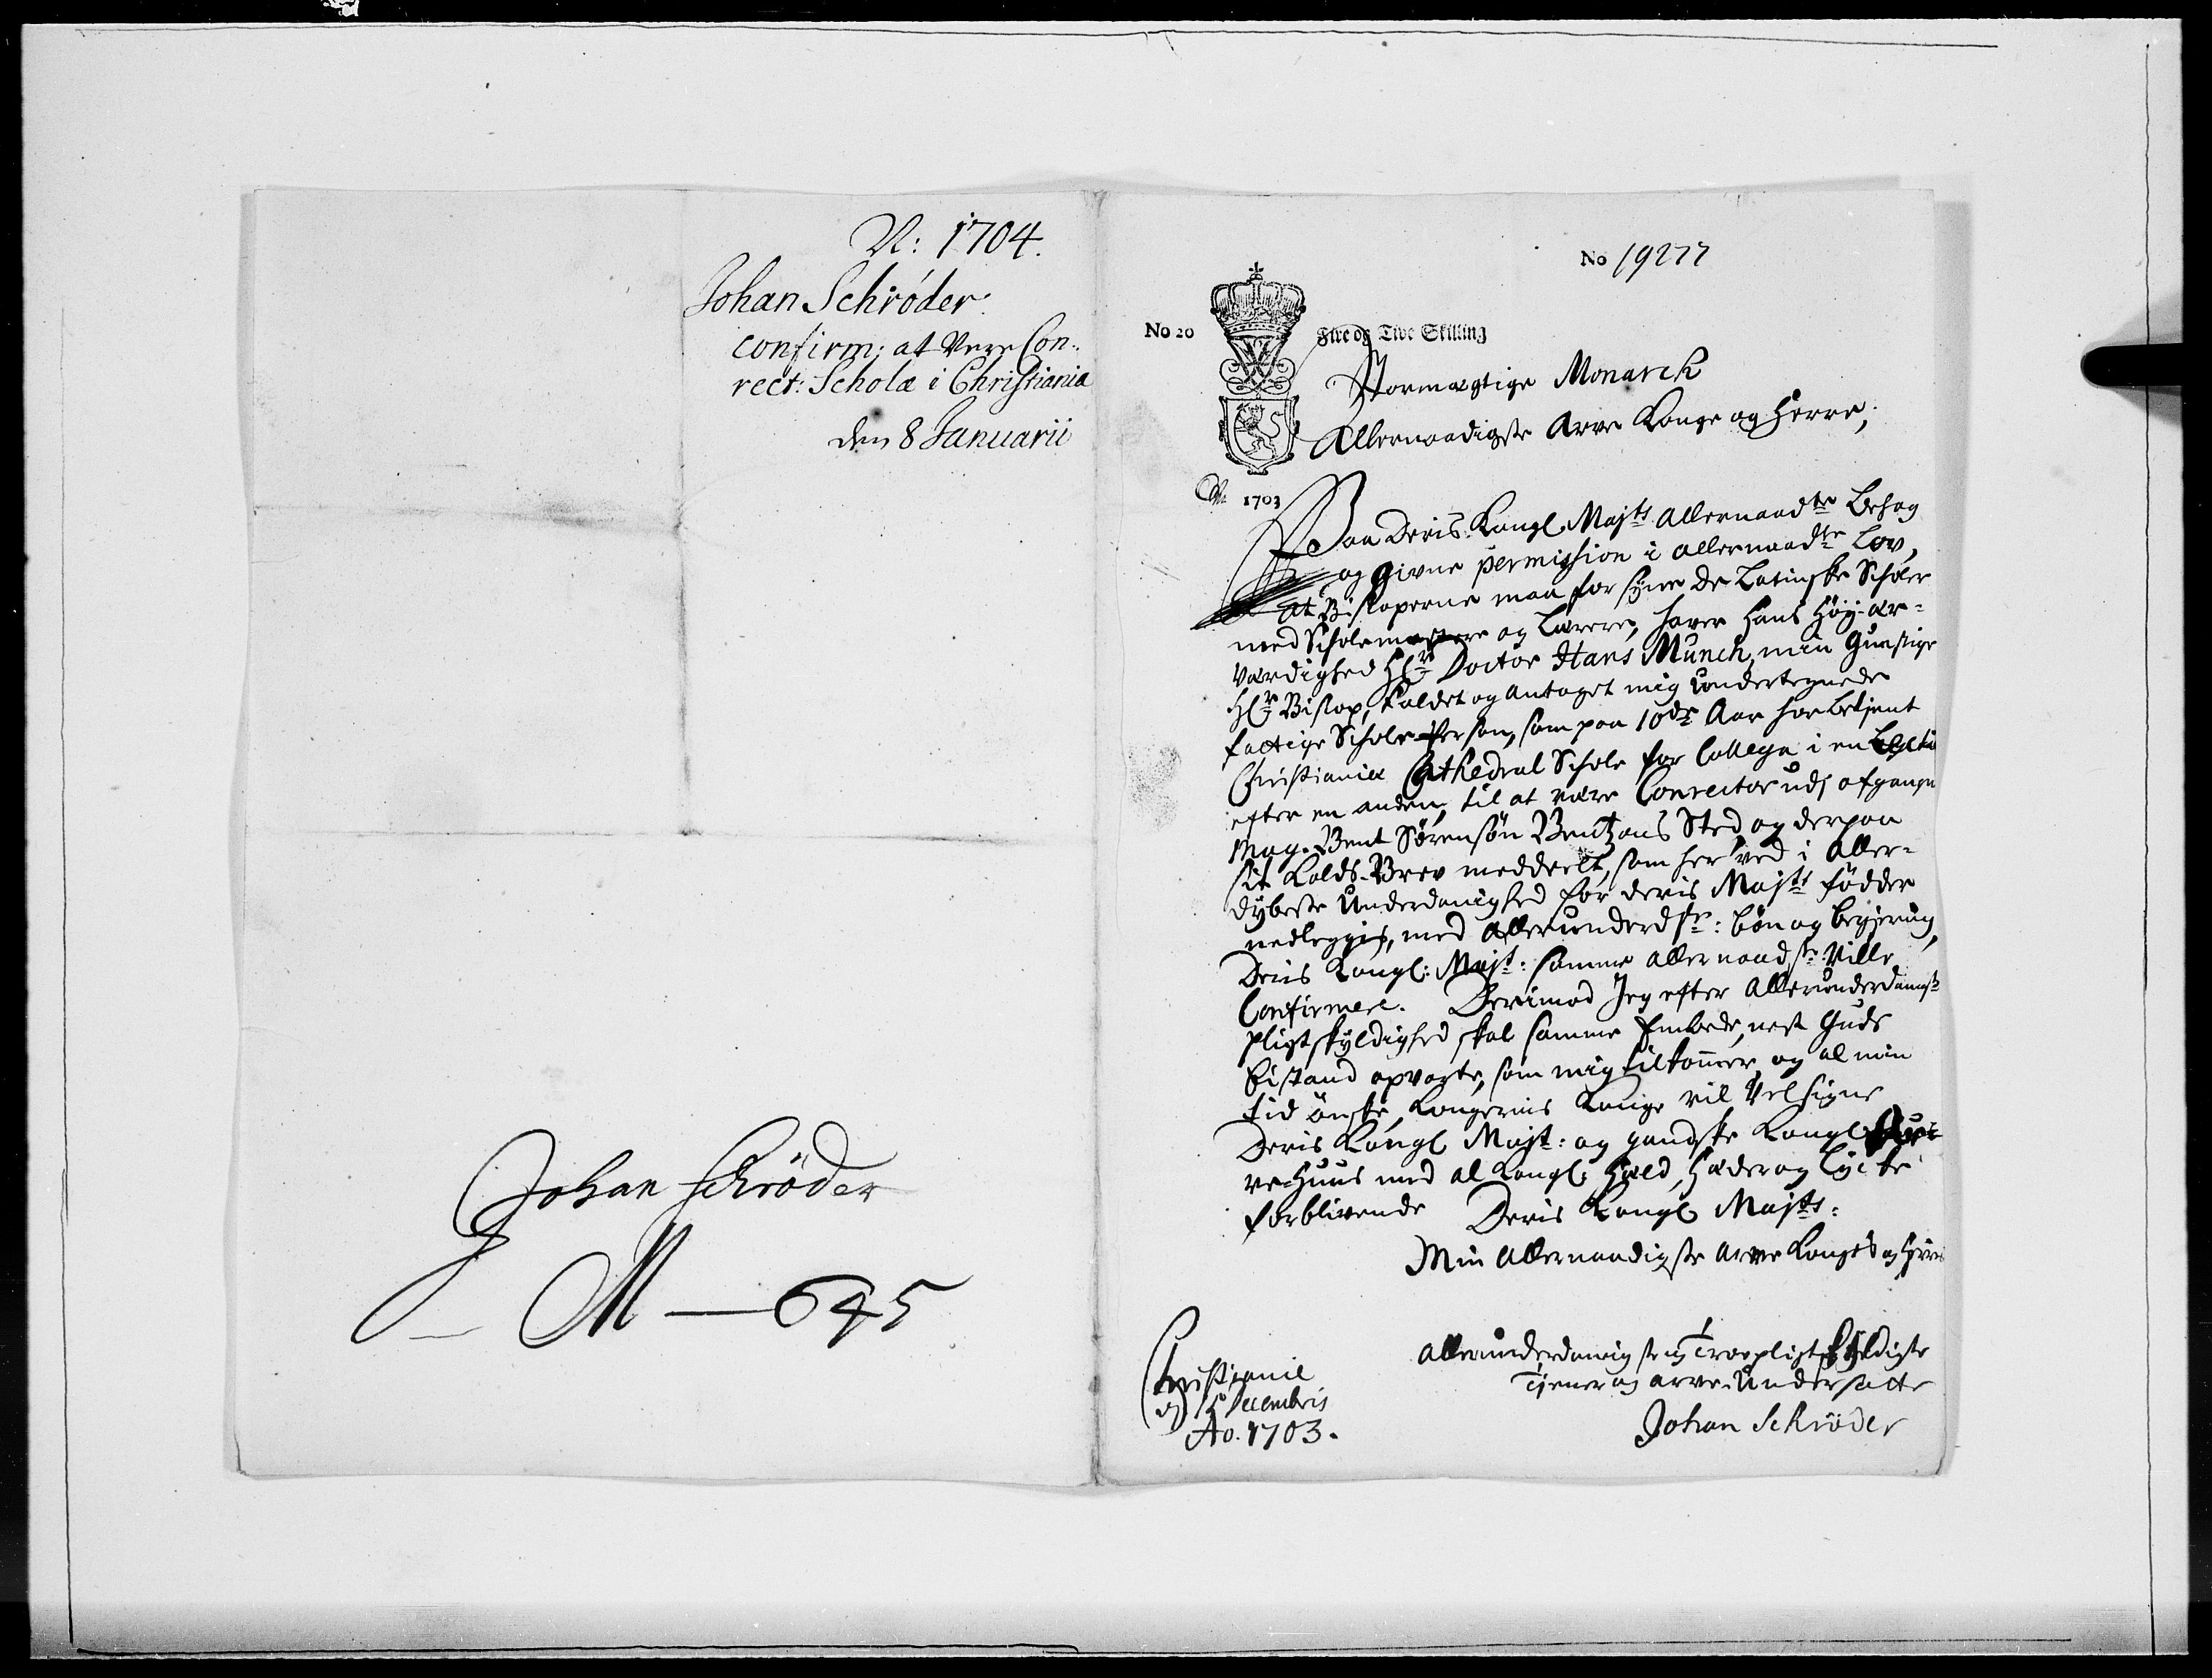 N: 1704.
Johan Schrøder
confirm: at Være Con:
rect: Scholæ i Christiania
den 8 Januarii
Johan Schrøder
M — 645
No 19277
No 20
Fire og Tive Skilling
Stormægtige Monarck
Allernaadigste Arve Konge og Herre;
1703
Paa Deris Kongl. Majts Allernaadte behag
og givne permission i allernaadte Lov,
at Biskoperne maa forsyne De Latinske Scholer
med Scholemestere og Lærere, haver Hans Høy-ær-
værdighed Hr Doctor Hans Munch, min Gunstige
Hr Biskop, kaldet og antaget mig underteignede
fattige Schole-Person, som paa 10de Aar har betient
Christianiæ Cathedral Schole for Collega i en Lectie
efter en anden, til at være Conrector udj afgangne
Mag. Bent Sørensøn Bentzons Sted, og derpaa
sit Kalds-Brev meddeelt, som her ved i Aller-
dybeste Underdanighed for deris Majts fødder
nedleggis, med Allerunderdste: bøn og begjering,
Deris Kongl: Majt: samme allernaadste Ville
Confirmere. Derimod Jeg efter Allerunderdanigste
Pligtskyldighed skal samme Embede, nest Guds
bistand opvarte, som mig tilkommer, og al min
tid ønske, Kongernis Konge vil Velsigne
Deris Kongl Majt: og gandske Kongl
ve-Huus med al Kongl: Held, Hæder og Lycke
forblivende Deris Kongl Majts:
Min Allernaadigste Arve Konges og Herris
Allerunderdanigste og Troepligtskyldigste
Tjener og arve-Undersatte
Johan Schrøder
Christianiæ
Decembris
Ao. 1703.